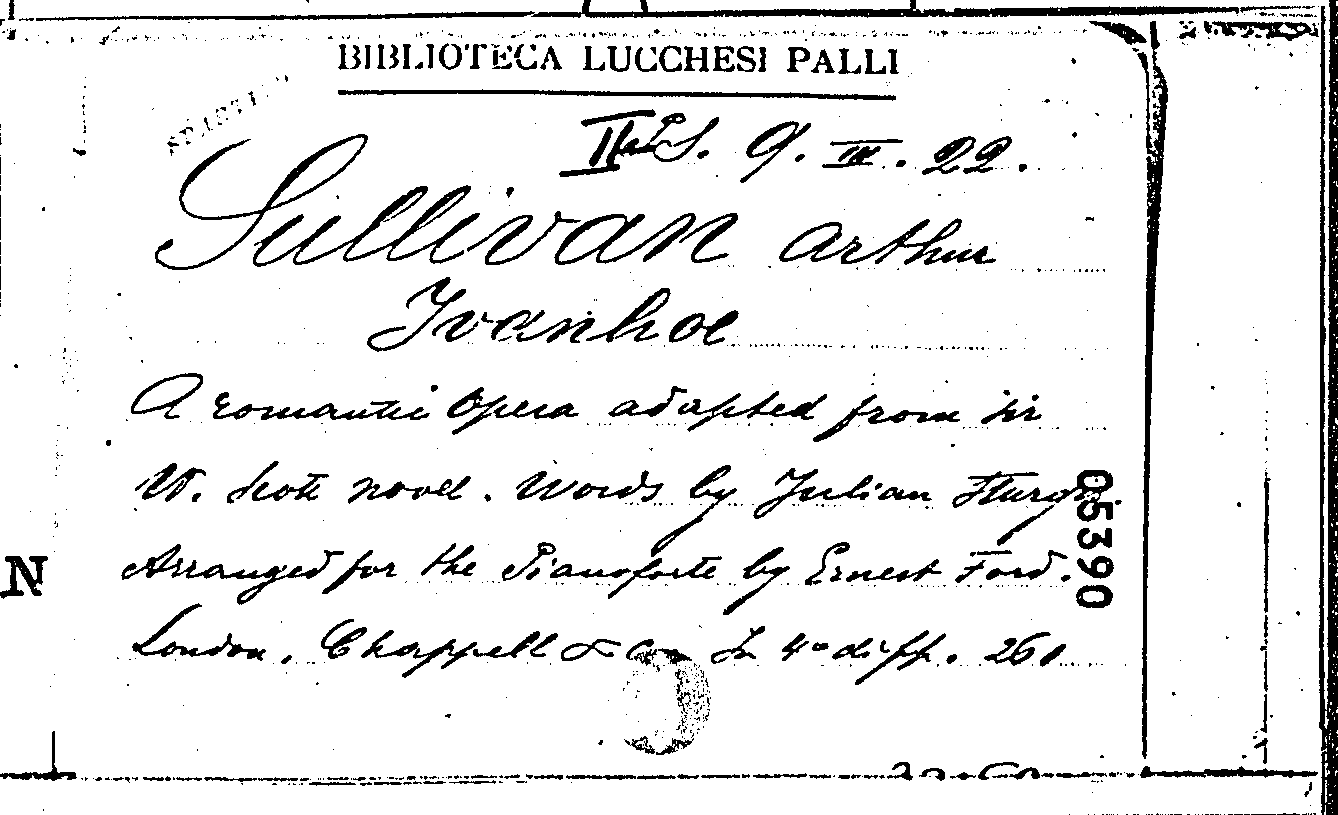 BIBLIOTECA LUCCHESI PALLI
S. 9. III. 22.
Sullivan Arthur
Ivanhoe
A romantic Opera adapted from Sir
W. Scott novel. Words by Julian Sturgis.
Arranged for the Pianoforte by Ernest Ford.
London, Chappell & Co. In 4º di pp. 261
05390
N